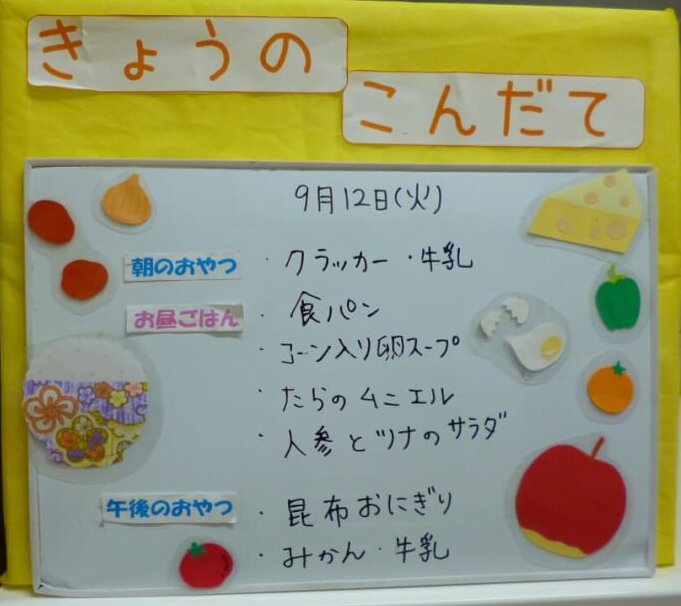 きょうの
こんだて
9月12日(火)
朝のおやつ ・クラッカー・牛乳
お昼ごはん ・食パン
・コーン入り卵スープ
・たらのムニエル
・人参とツナのサラダ
午後のおやつ ・昆布おにぎり
・みかん・牛乳